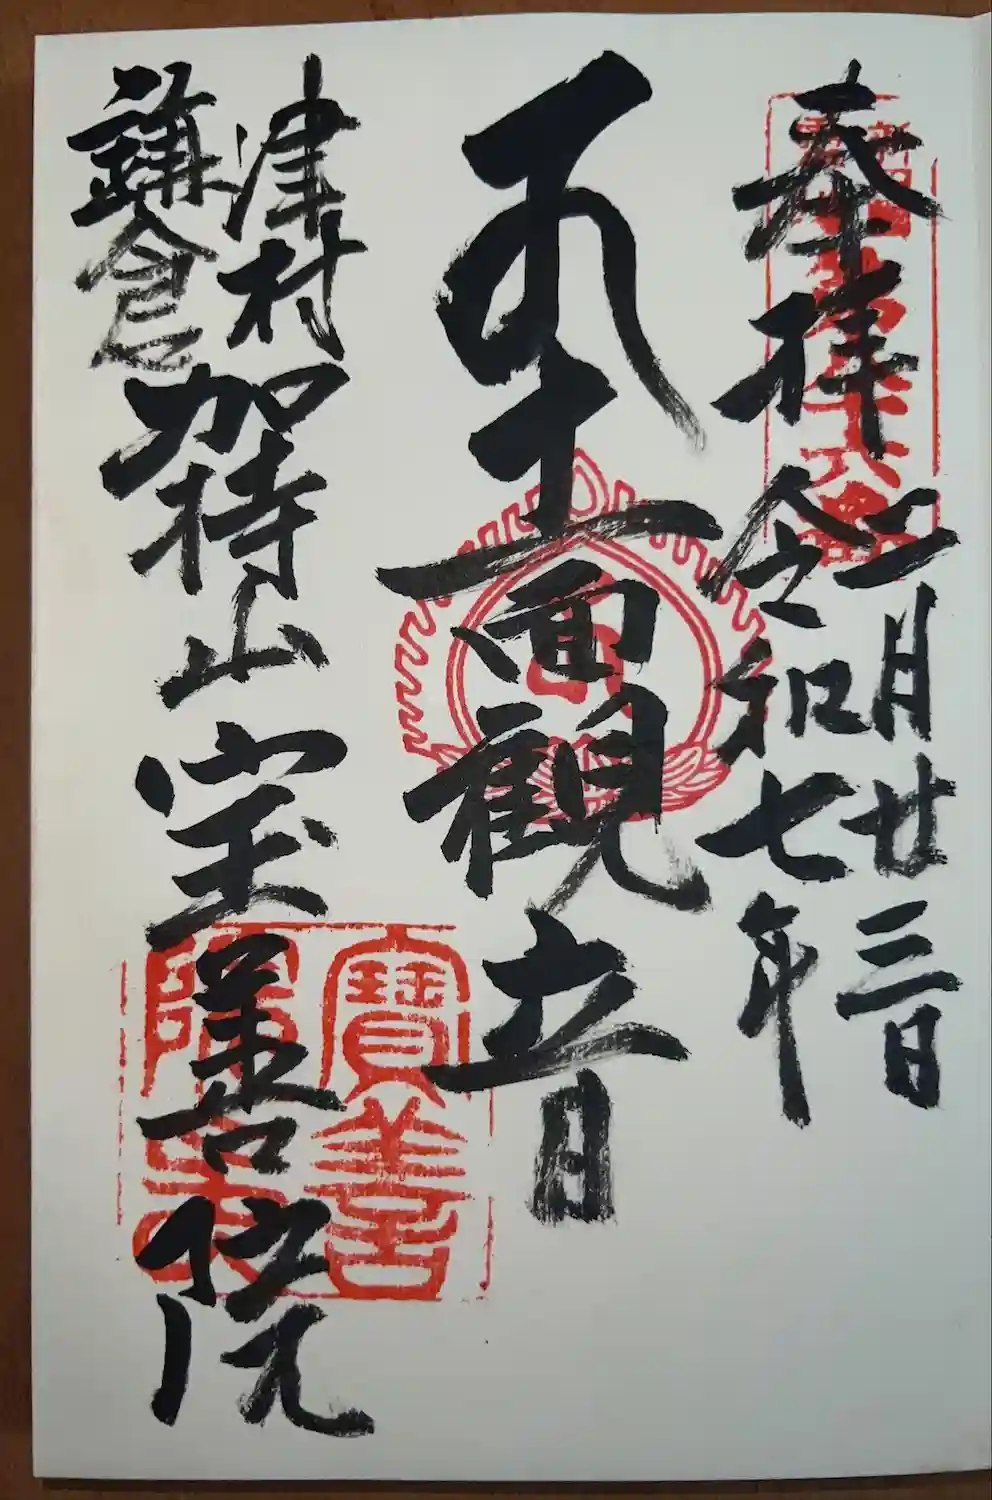 奉拝
令和七年
二月廿三日
十一面観音
鎌倉
津村
加持山宝善院
寶善
院